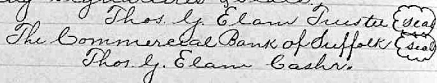 Thos. G. Elam Trustee (seal)
The Commercial Bank of Suffolk (seal)
Thos. G. Elam Cashr.